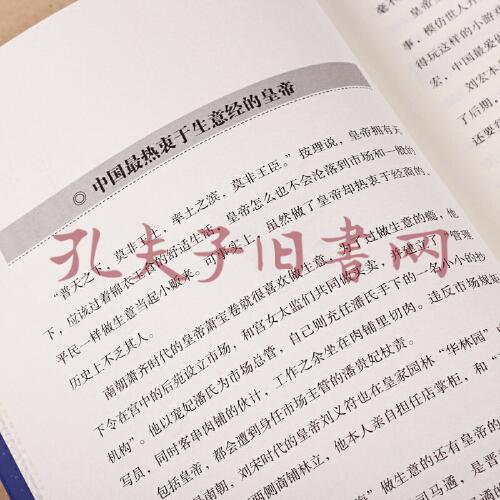 中国最热衷于生意经的皇帝
“普天之下，莫非王土，率土之滨，莫非王臣。”按理说，皇帝拥有天
下，应该过着锦衣玉食的舒适生活，皇帝怎么也不会沦落到市场和一般的
平民一样做生意当起小贩来。事实上，虽然做了皇帝却热衷于经商的，
历史上不乏其人。
南朝萧齐时代的皇帝萧宝卷就很喜欢做生意。为了过做生意的瘾，他
下令在宫中的后苑设立市场，和宫女太监们共同做买卖，并建立
管理
机构”。他以宠妃潘氏为市场总管，自己则充任潘氏手下的一名小小的抄
写员，同时客串肉铺的伙计，工作之余坐在肉铺里切肉。违反市场规
包括皇帝，都会遭到身任市场主管的潘贵妃杖责。
南朝，刘宋时代的皇帝刘义符也在皇家园林“华林园”
两侧商铺林立，他本人亲自担任店掌柜，和“
做生意的还有皇帝的
马遹，是晋
事，模仿世人开
得玩这样的小游
宏，中国最爱做
刘宏本
了后期，
还要
孔夫子旧书网